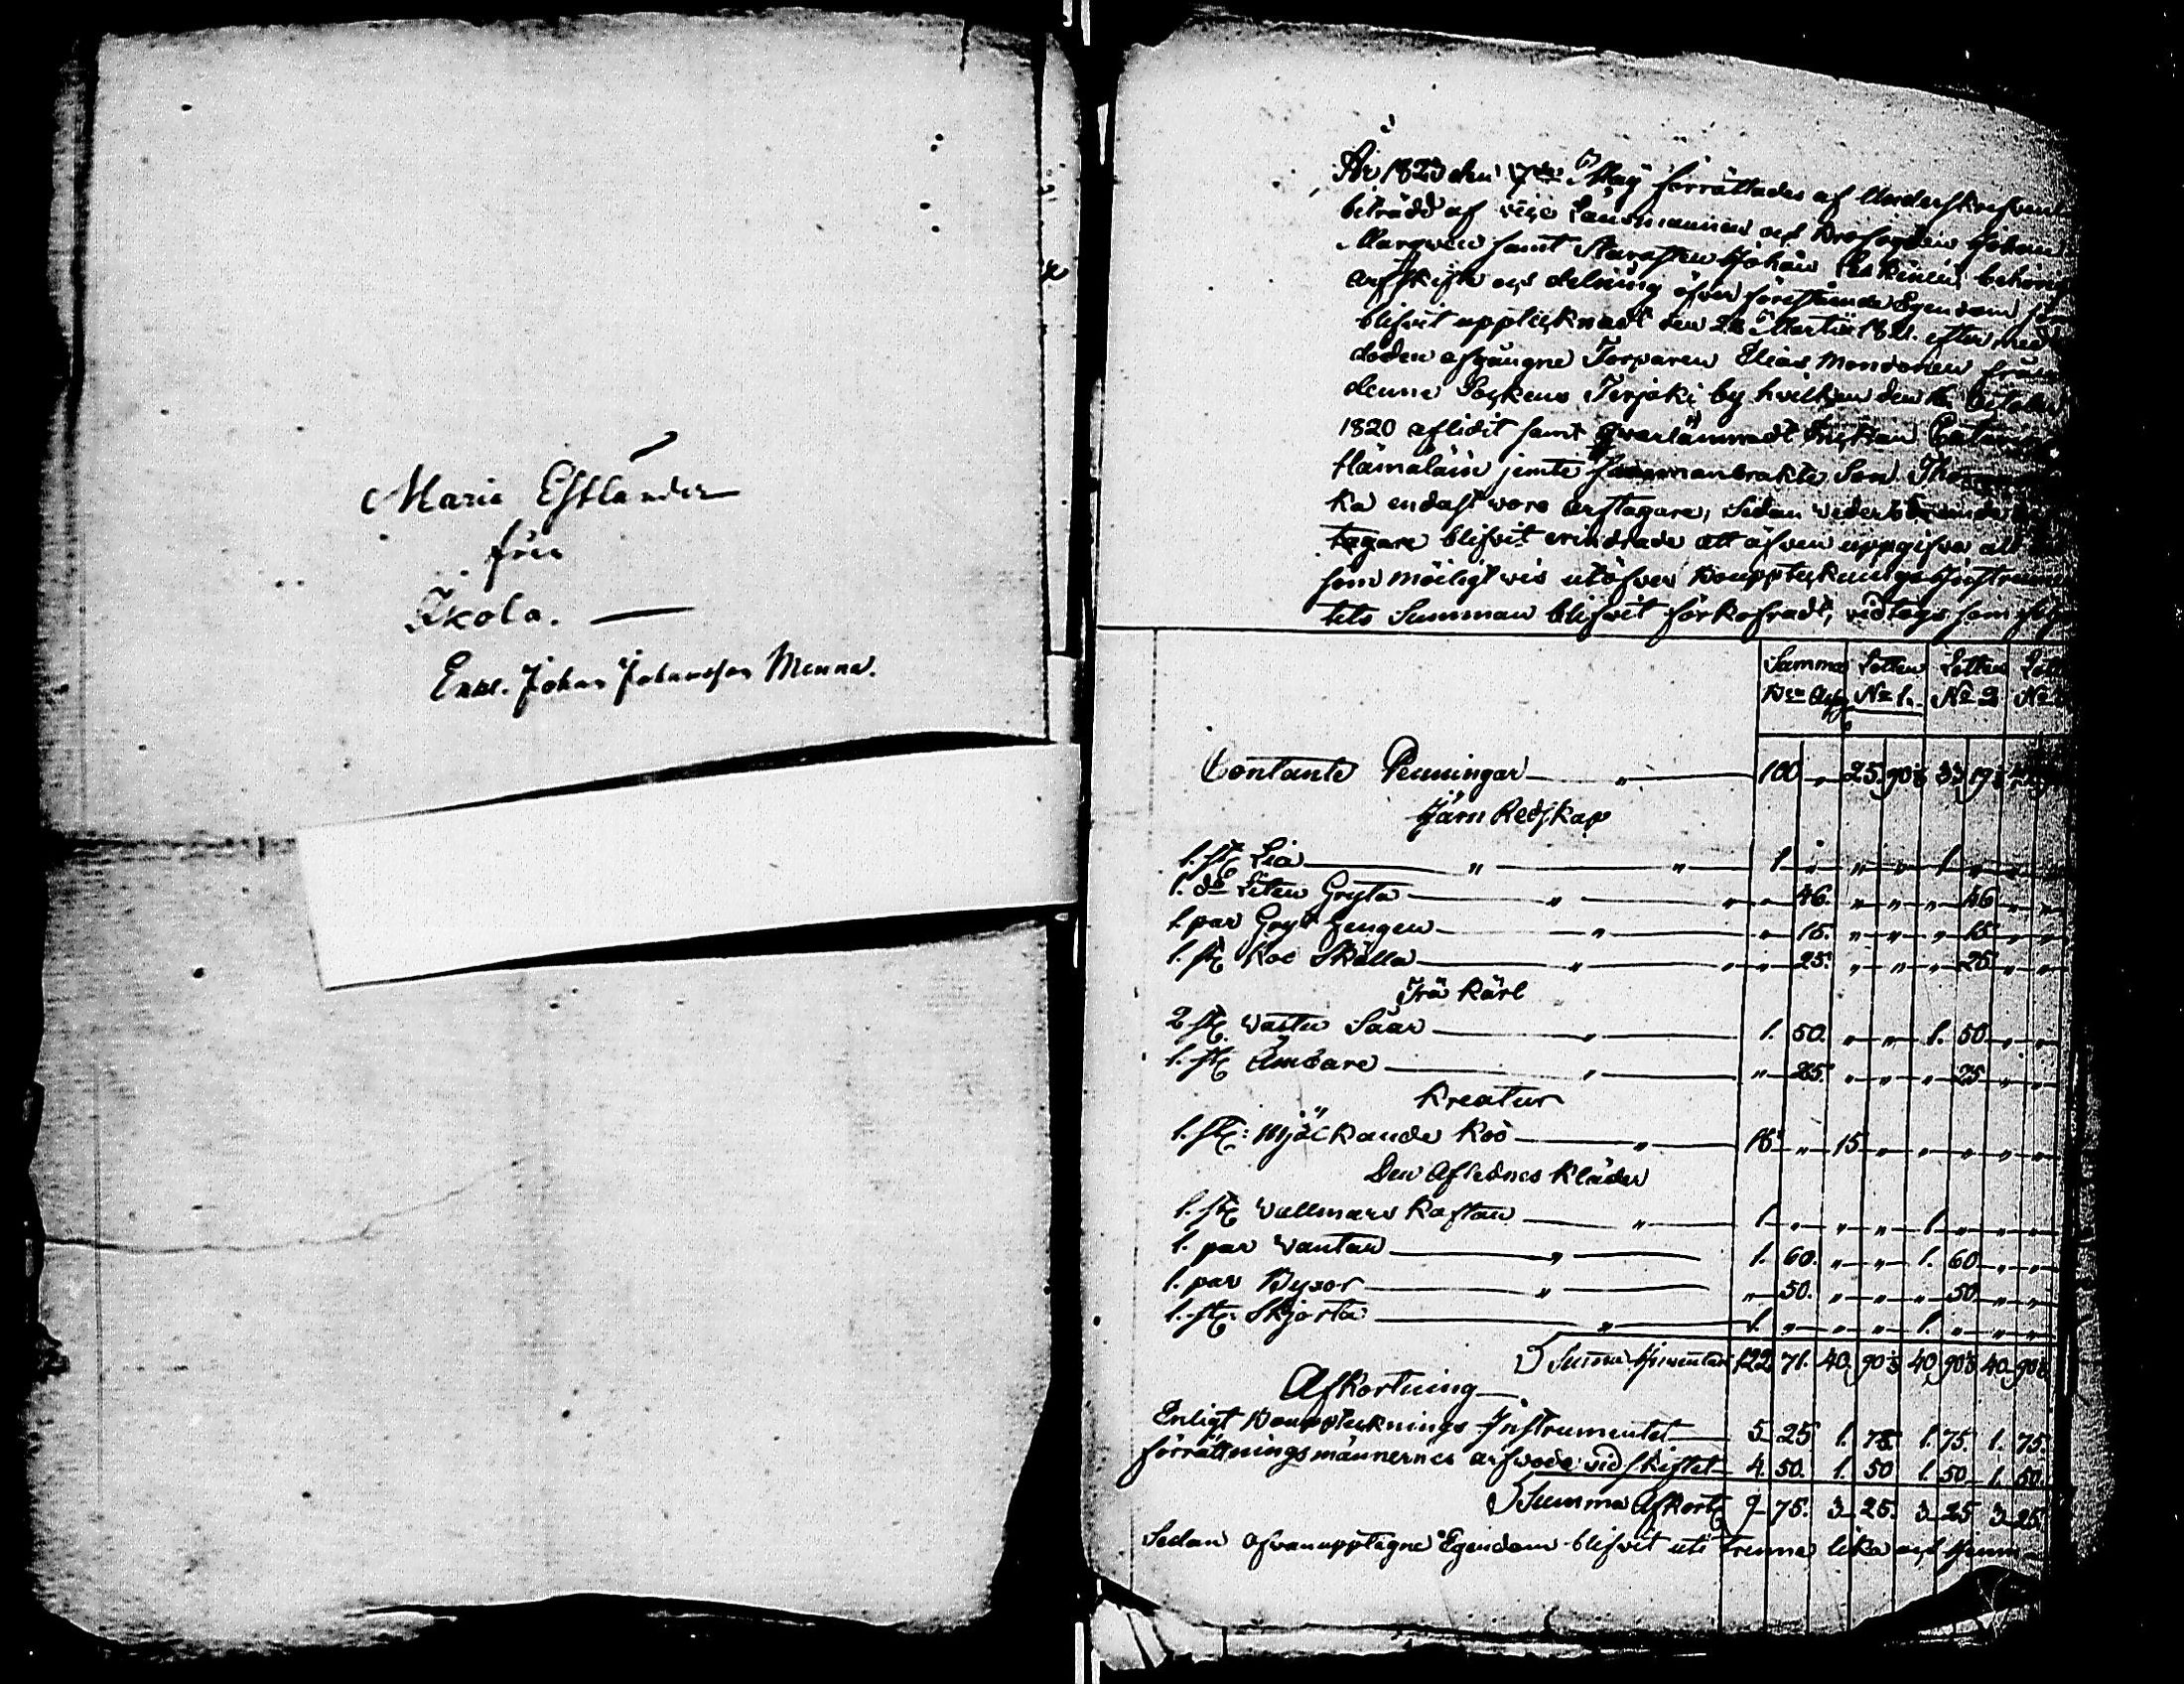 Marie Estlander
från
Ikola. —
Enw. Johan Johansson Menna.
År 1823 den 7de Maij förrättades af Underskrefven
biträdd af vice Länsmannen och Krofogden Johan
samt Starosten Johan behörig
arfskifte och delning öfver förestående Egendom som
blifvit upptecknadt den 28 Martii 1821. efter med
döden afgångne Torparen Elias Mononen från
denne Sockens Terjoki by hvilken den October
1820 aflidit samt qvarlämnadt Enckan Catarina
Hämäläin jemte Sammanbrakte Son Thomas
ka endast woro arftagare, Sedan wederbörande
tagare blifvit erindrade att äfven uppgifva alt
som möiligtvis utöfver Bouppteknings Instrumen
tets Summan blifvit förkofradt, vidtogs som följer
Summa Lotten Lotten Lott
Bco Assg No 1. No 2 No
Contante Penningar — " — 100 " 25 90⅓ 33 19⅓
Järn Redskap
1. st. Lia — " — " — 1. " " " 1. " " "
1. do Liten Gryta — " — " " 46. " " " 46 " "
1. par Gryt hengen — " — " 15. " " " 15 " "
1. st. Koo Skälla — " — " " 25. " " " 25. " "
Trä Kärl
2 st. Vattu Såar — " — 1. 50. " " 1. 50 " "
1. st. Ämbare — " — " 25. " " " 25 " "
Kreatur
1. st. Mjölkande Koo — " — 15 " 15 " " " " "
Den Aflednes Kläder
1. st. Vallmars Kaftan — " — 1. " " " 1. " " "
1. par Vantar — " — 1. 60. " " 1. 60 " "
1. par Byxor — " — " 50. " " " 50 " "
1. st. Skjorta — " — 1. " " " 1. " " "
Summa Inventari 122 71. 40. 90⅓ 40 90⅓ 40 90⅓
Afkortning
Enligt Boupptecknings Instrumentet — 5 25 1. 75 1. 75. 1. 75.
förrättningsmännernes arfvode vid skiftet — 4. 50. 1. 50 1. 50 1. 50.
Summa Afkort. 9 75. 3 25. 3 25 3 25
Sedan ofvanupptagne Egendom blifvit uti trenne lika och